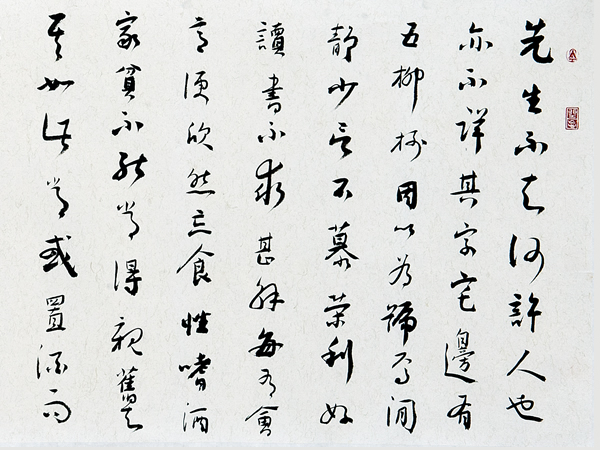 先生不知何許人也
亦不詳其字宅邊有
五柳樹因以為號焉閒
靜少言不慕榮利好
讀書不求甚解每有會
意便欣然忘食性嗜酒
家貧不能常得親舊知
其如此常或置酒而